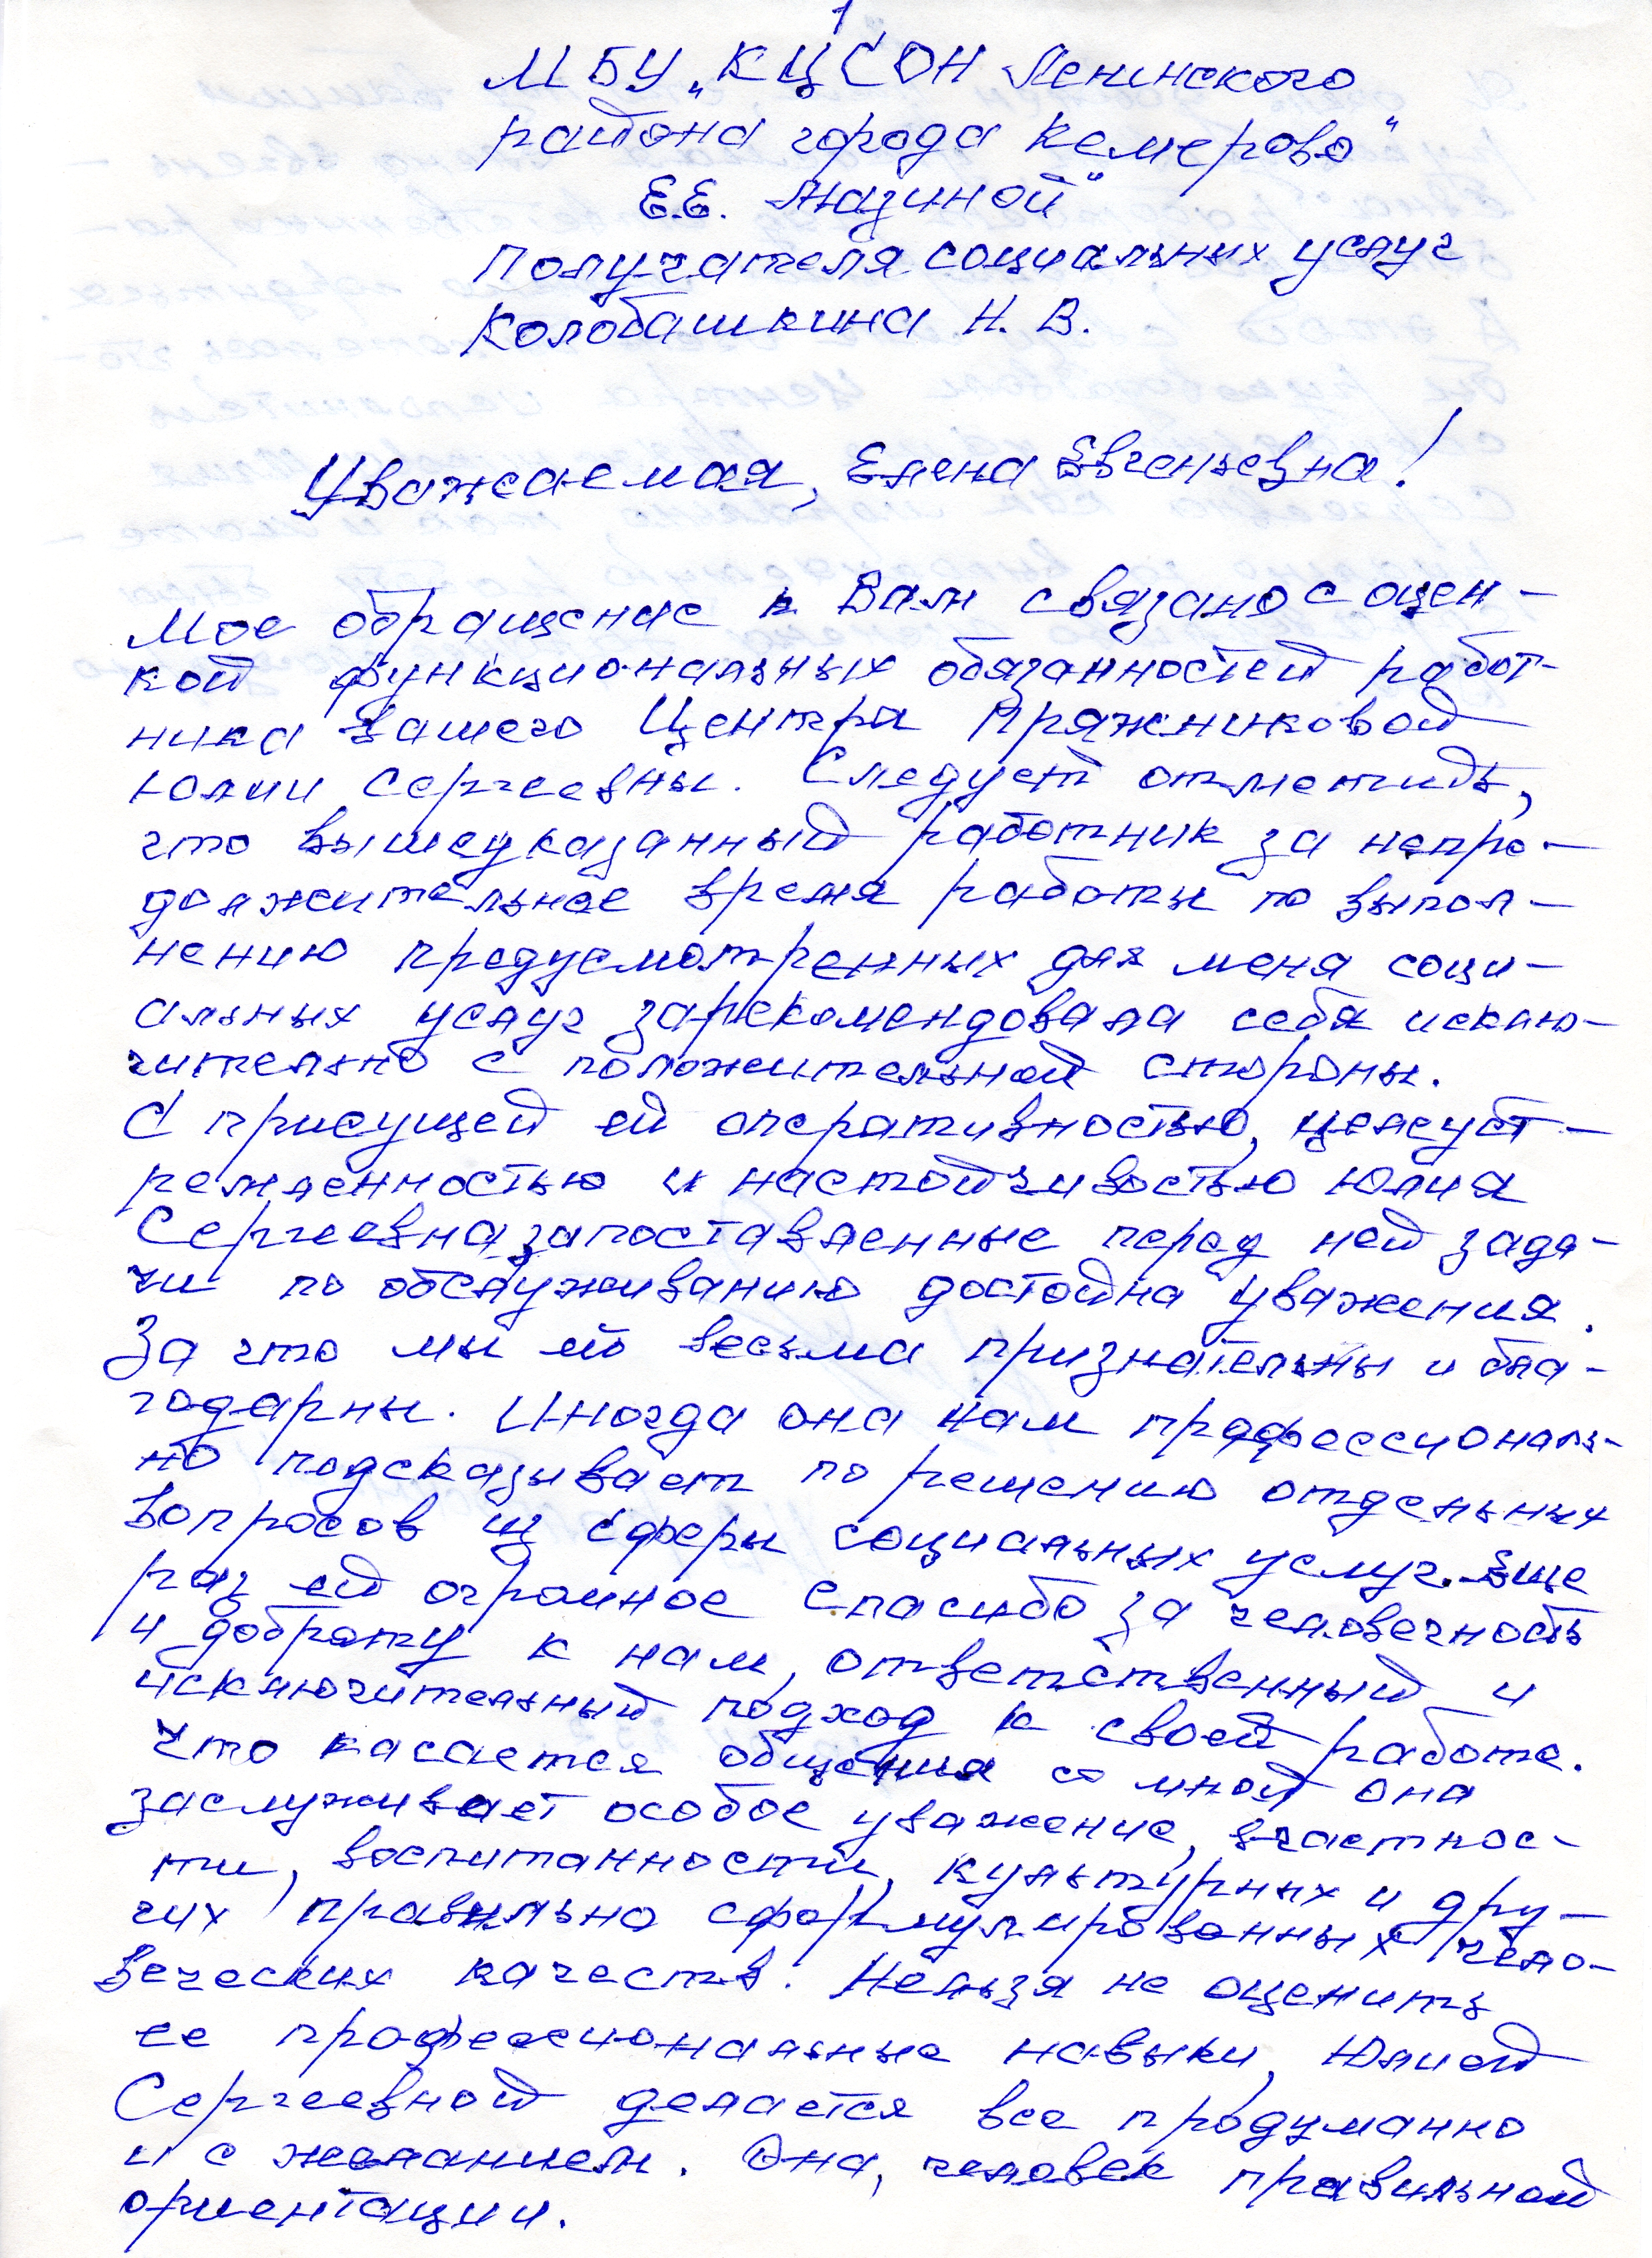 1
МБУ „КЦСОН Ленинского
района города Кемерово"
Е.Е. Лядиной"
Получателя социальных услуг
Колобашкина Н. В.
Уважаемая, Елена Евгеньевна!
Мое обращение к Вам связано с оцен-
кой функциональных обязанностей работ-
ника вашего Центра Пряжниковой
Юлии Сергеевны. Следует отметить,
что вышеуказанный работник за непро-
должительное время работы по выпол-
нению предусмотренных для меня соци-
альных услуг зарекомендовала себя исклю-
чительно с положительной стороны.
С присущей ей оперативностью, целеуст-
ремленностью и настойчивостью Юлия
Сергеевна за поставленные перед ней зада-
чи по обслуживанию достойна уважения.
За что мы ей весьма признательны и бла-
годарны. Иногда она нам профессиональ-
но подсказывает по решению отдельных
вопросов из сферы социальных услуг. Еще
раз ей огромное спасибо за человечность
и доброту к нам, ответственный и
исключительный подход к своей работе.
Что касается общения со мной она
заслуживает особое уважение, вчастнос-
ти, воспитанности, культурных и дру-
гих правильно сформулированных чело-
веческих качеств. Нельзя не оценить
ее профессиональные навыки, Юлией
Сергеевной делается все продуманно
и с желанием. Она, человек правильной
ориентации.